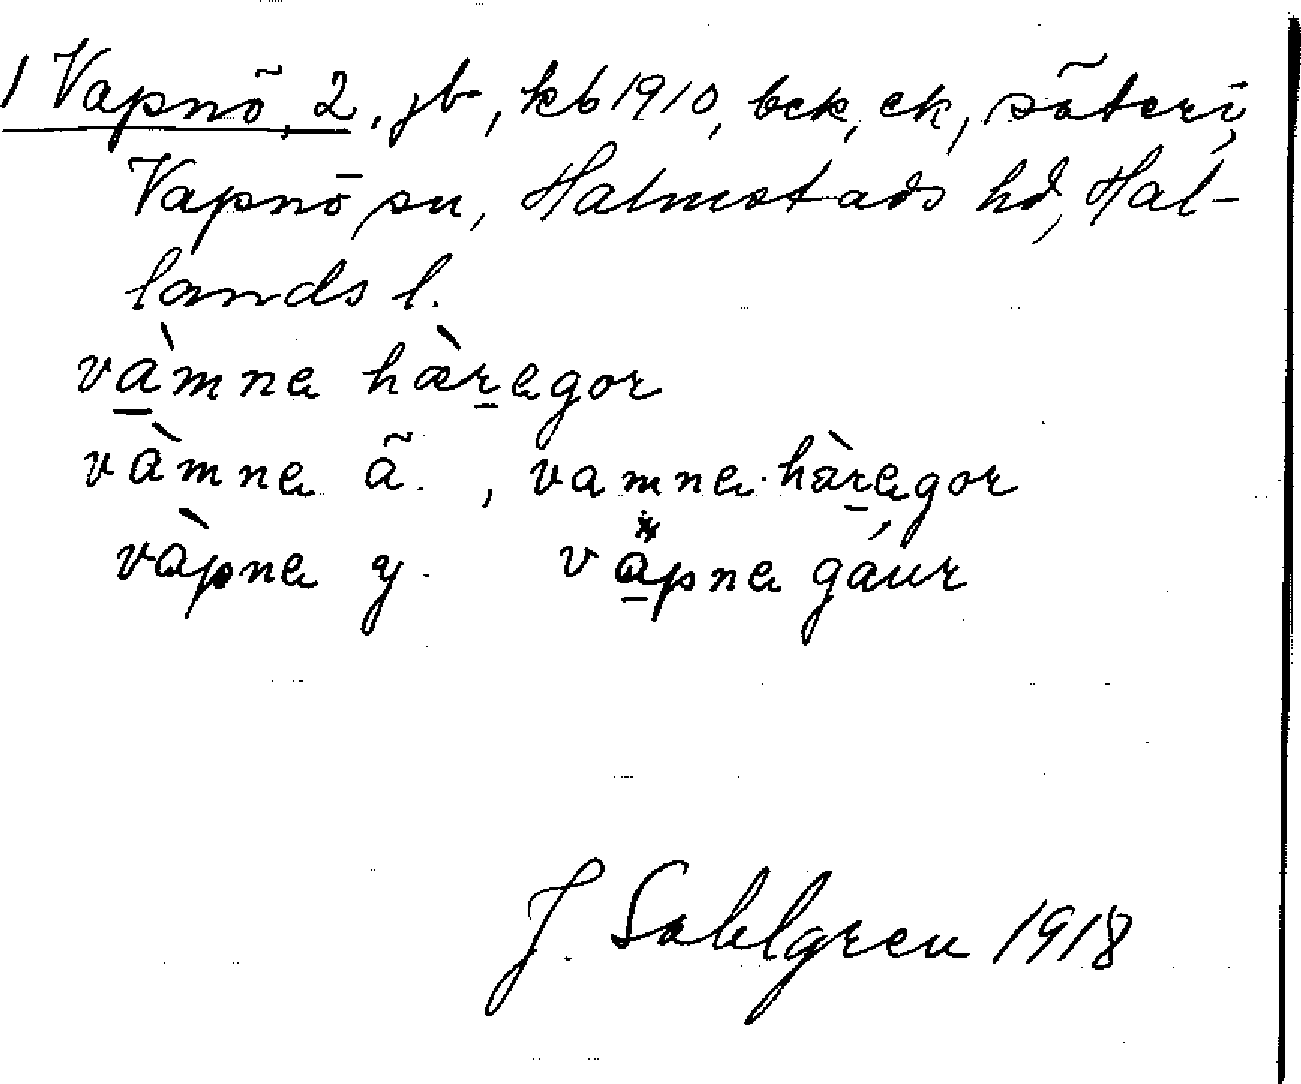 1 Vapnö, 2, jb, kb 1910, bek, ek, säteri,
Vapnö sn, Halmstads hd, Hal-
lands l.
vàmne hæ̀regor
vàmne ã. , vamne hàregor
vàpne y. väpne gáur
J. Sahlgren 1918